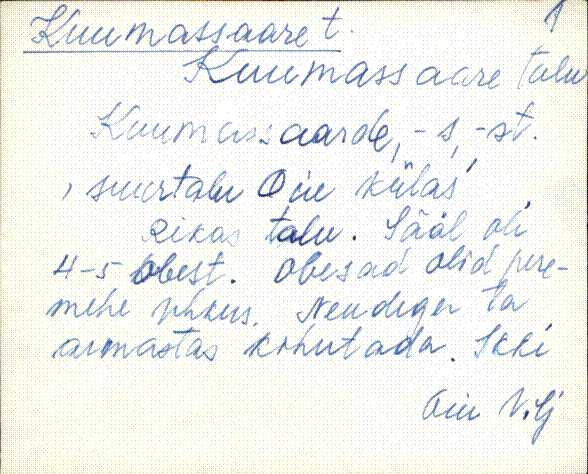 Kuumassaare t. 1
Kuumassaare talu
Kuumassaarde, -s, -st.
, suurtalu Õiu külas
Rikas talu. Sääl oli
4-5 obest. Obesad olid pere-
mehe uhkus. Nendega ta
armastas kohutada. Ikki
Õiu Vlj